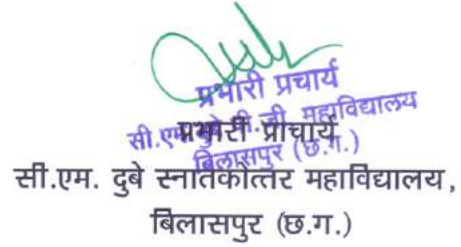 प्रभारी प्रचार्य
सी.एम. दुबे पी.जी. महाविद्यालय
बिलासपुर (छ.ग.)
प्रभारी प्राचार्य
सी.एम. दुबे स्नातकोत्तर महाविद्यालय,
बिलासपुर (छ.ग.)